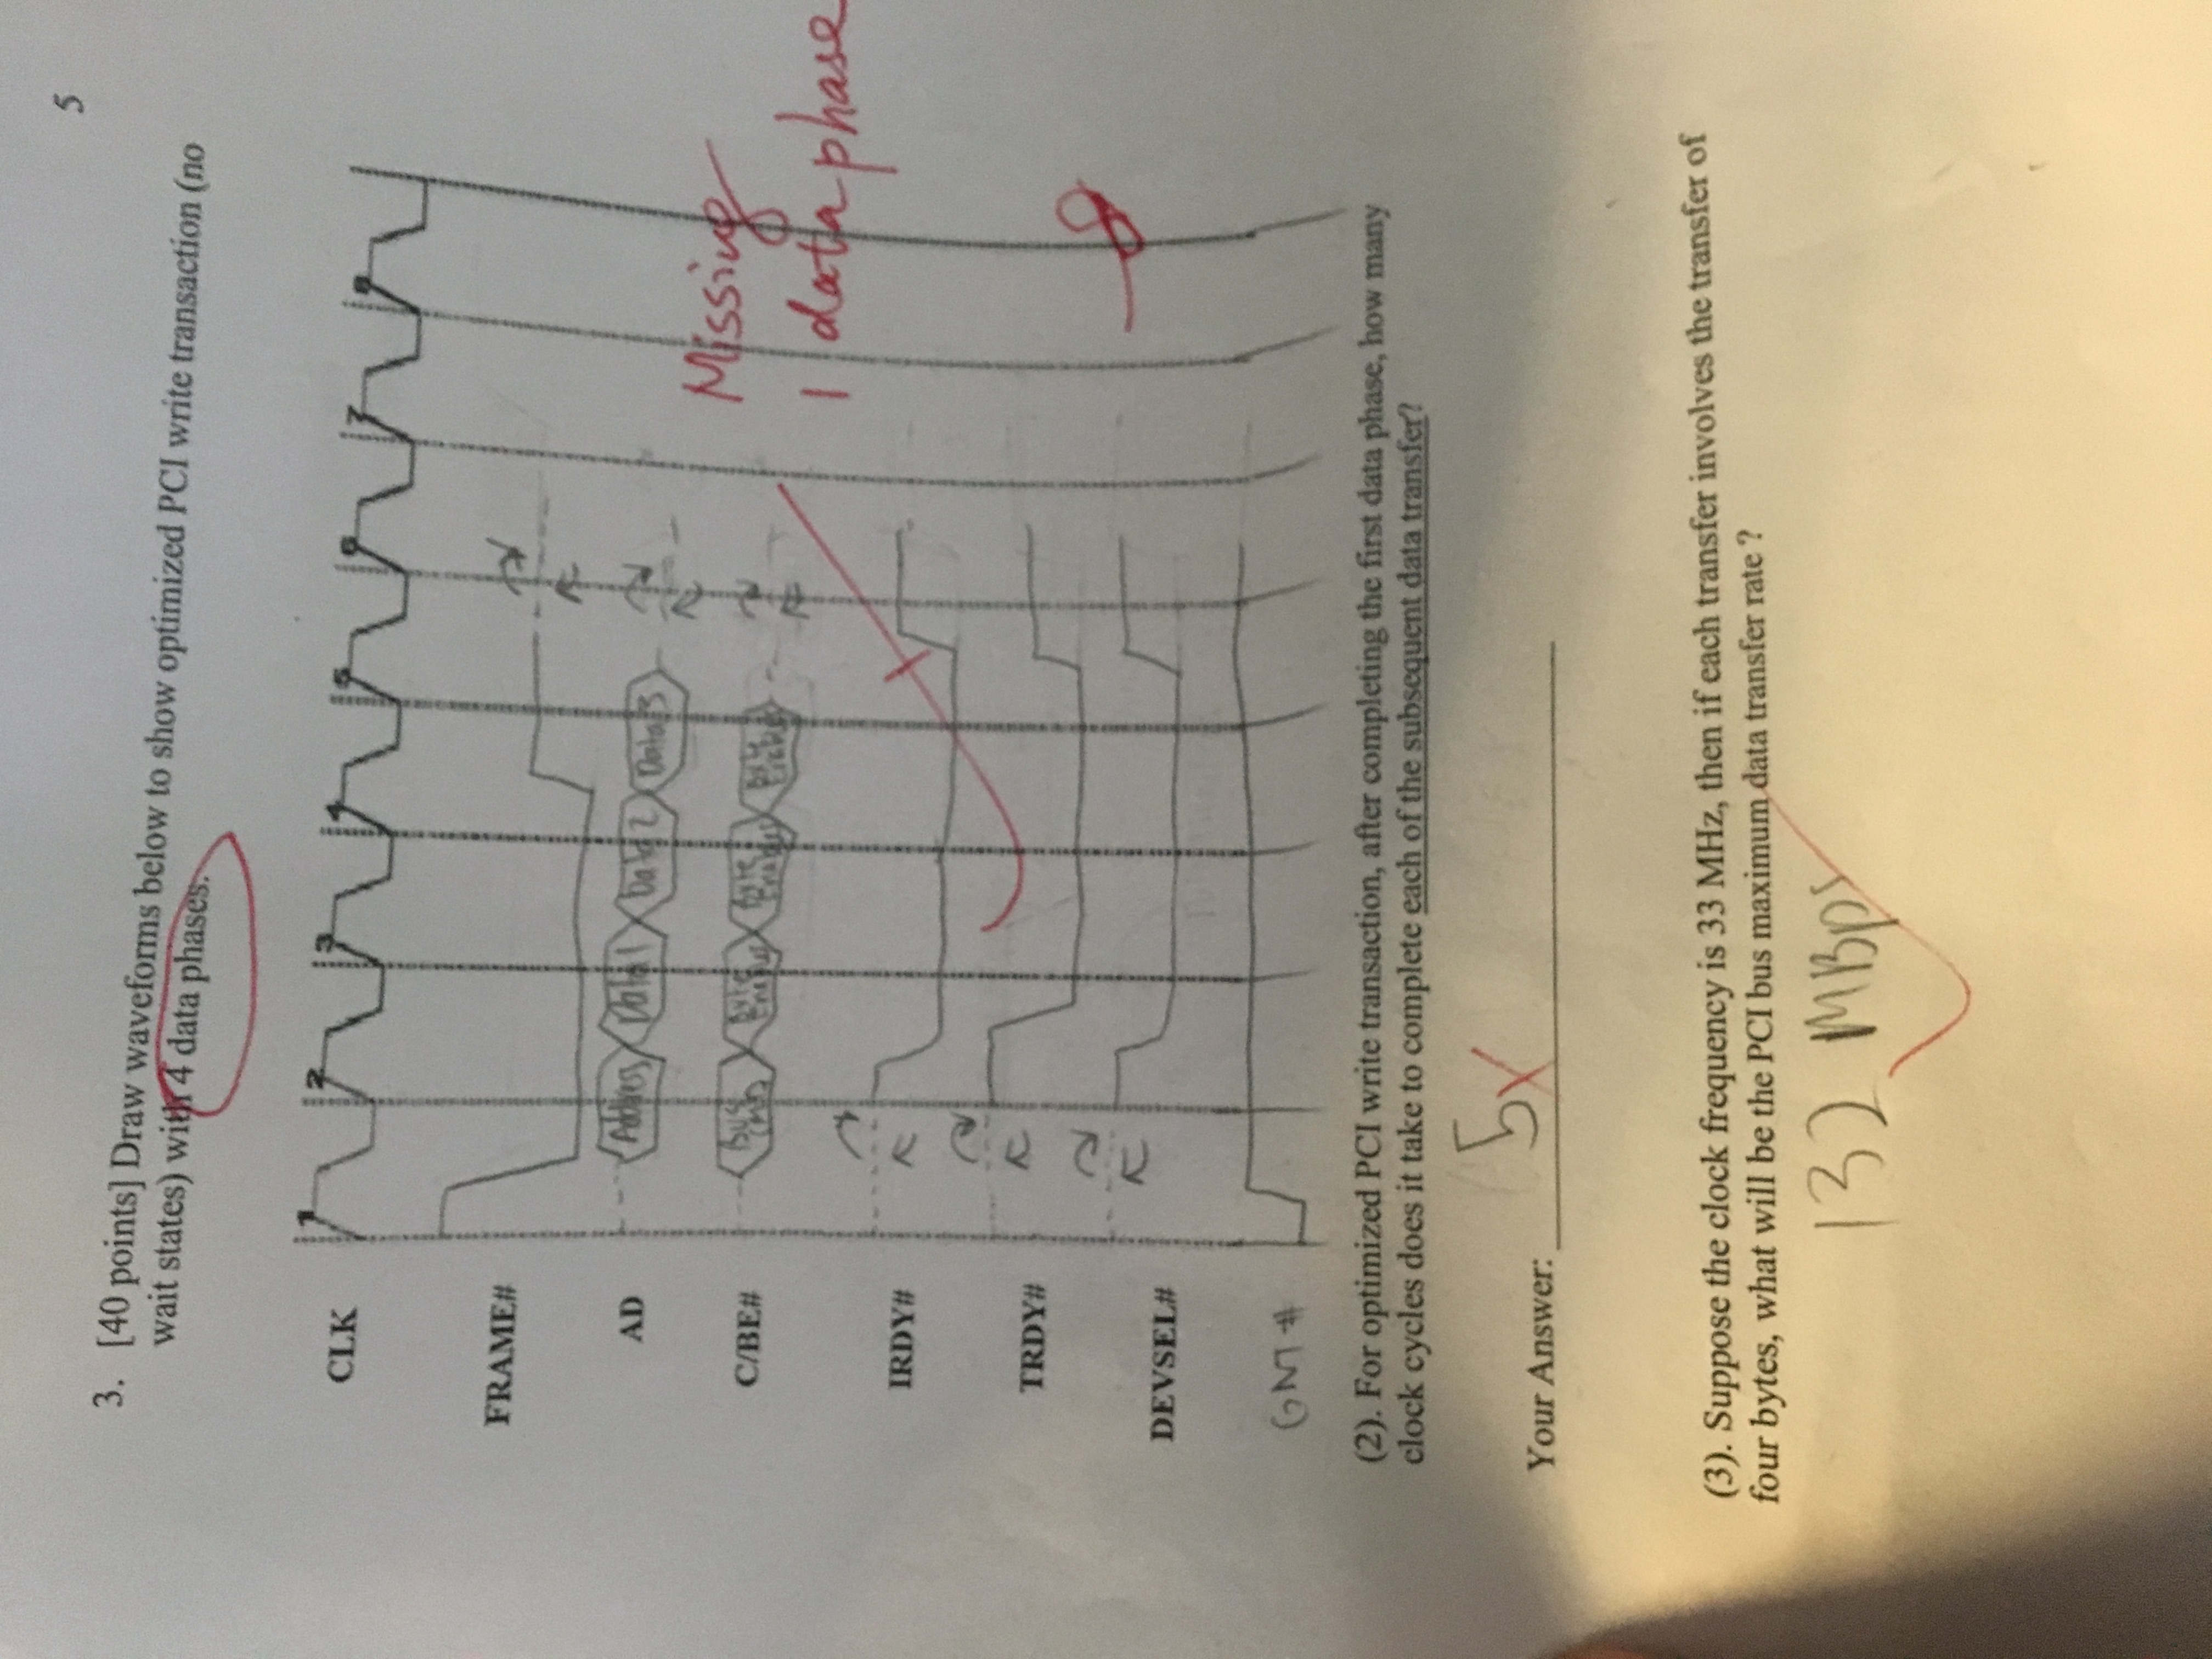 5
3. [40 points] Draw waveforms below to show optimized PCI write transaction (no
wait states) with 4 data phases.
CLK 1 2 3 4 5 6 7 8
FRAME#
AD Address Data 1 Data 2 Data 3
C/BE# Bus CMD Byte Enables Byte Enables Byte Enables
Missing
1 data phase
IRDY#
TRDY#
-8
DEVSEL#
GNT#
(2). For optimized PCI write transaction, after completing the first data phase, how many
clock cycles does it take to complete each of the subsequent data transfer?
Your Answer: 5 X
(3). Suppose the clock frequency is 33 MHz, then if each transfer involves the transfer of
four bytes, what will be the PCI bus maximum data transfer rate ?
132 MBps